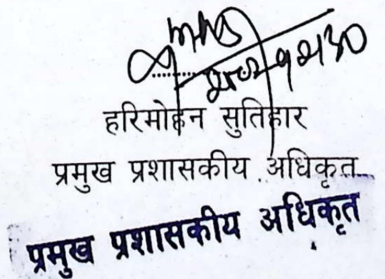 हरिमोहन सुतिहार
प्रमुख प्रशासकीय अधिकृत
प्रमुख प्रशासकीय अधिकृत